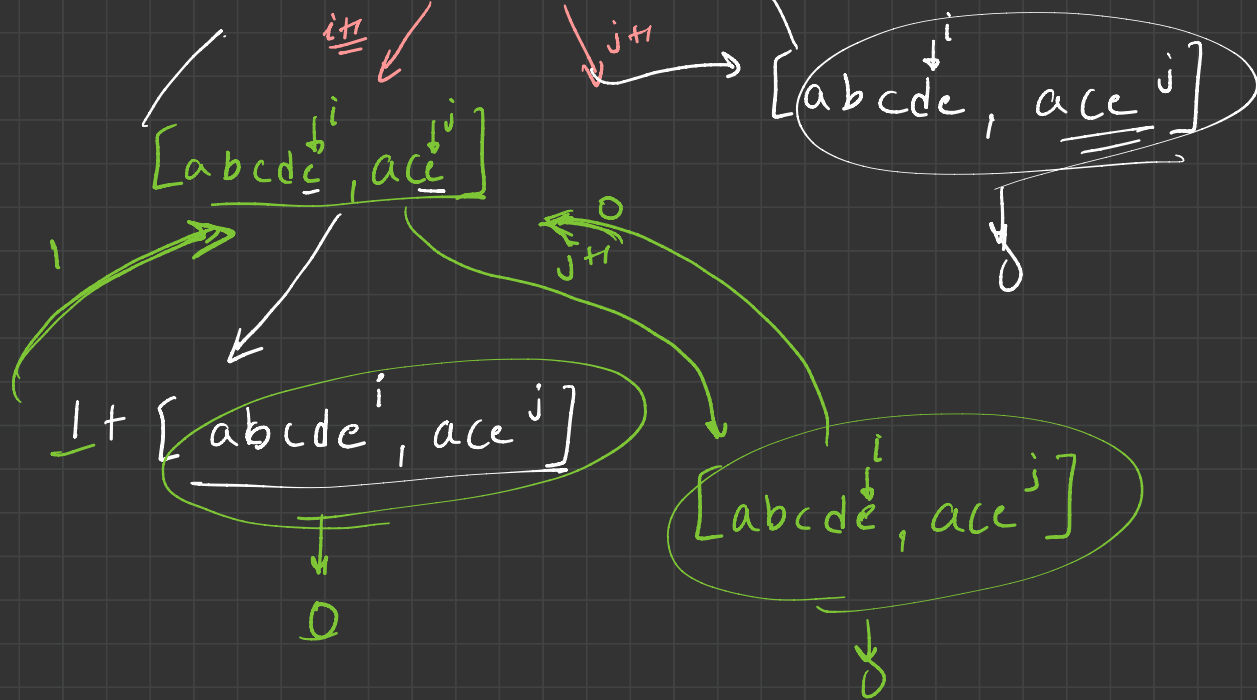 i+1
j+1
i
[abcde, ace j]
i j
[abcde, ace]
1
0
j+1
0
i j
1+ [abcde, ace]
i j
[abcde, ace]
0
0